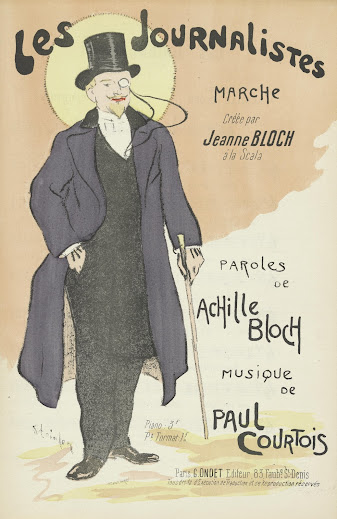 Les Journalistes
MARCHE
Créée par
Jeanne BLOCH
à la Scala
PAROLES
DE
ACHILLE
BLOCH
MUSIQUE
DE
PAUL
COURTOIS
Piano: 5f
Pt Format 1f
Paris, G. ONDET Editeur 83, Faubg. St Denis
Tous droits d'Exécution de Traduction et de Reproduction réservés